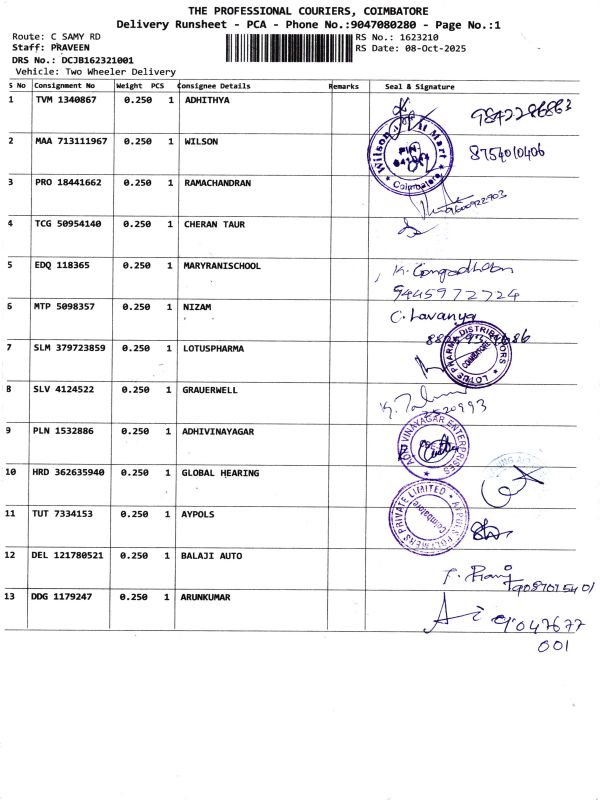 THE PROFESSIONAL COURIERS, COIMBATORE
Delivery Runsheet - PCA - Phone No.:9047080280 - Page No.:1
Route: C SAMY RD
RS No.: 1623210
Staff: PRAVEEN
RS Date: 08-Oct-2025
DRS No.: DCJB162321001
Vehicle: Two Wheeler Delivery
S No Consignment No Weight PCS Consignee Details Remarks Seal & Signature
1 TVM 1340867 0.250 1 ADHITHYA
2 MAA 713111967 0.250 1 WILSON 8754010406
Wilson Mart
PIN
Coimbatore
3 PRO 18441662 0.250 1 RAMACHANDRAN 9600922903
4 TCG 50954140 0.250 1 CHERAN TAUR
5 EDQ 118365 0.250 1 MARYRANISCHOOL
9445972724
6 MTP 5098357 0.250 1 NIZAM C. Lavanya
7 SLM 379723859 0.250 1 LOTUSPHARMA
LOTUS PHARMA DISTRIBUTORS
COIMBATORE
8 SLV 4124522 0.250 1 GRAUERWELL
9 PLN 1532886 0.250 1 ADHIVINAYAGAR
ADHI VINAYAGAR ENTERPRISES
10 HRD 362635940 0.250 1 GLOBAL HEARING
11 TUT 7334153 0.250 1 AYPOLS
AYPOLS POLYMERS PRIVATE LIMITED
Coimbatore
12 DEL 121780521 0.250 1 BALAJI AUTO
13 DDG 1179247 0.250 1 ARUNKUMAR
9047677
001